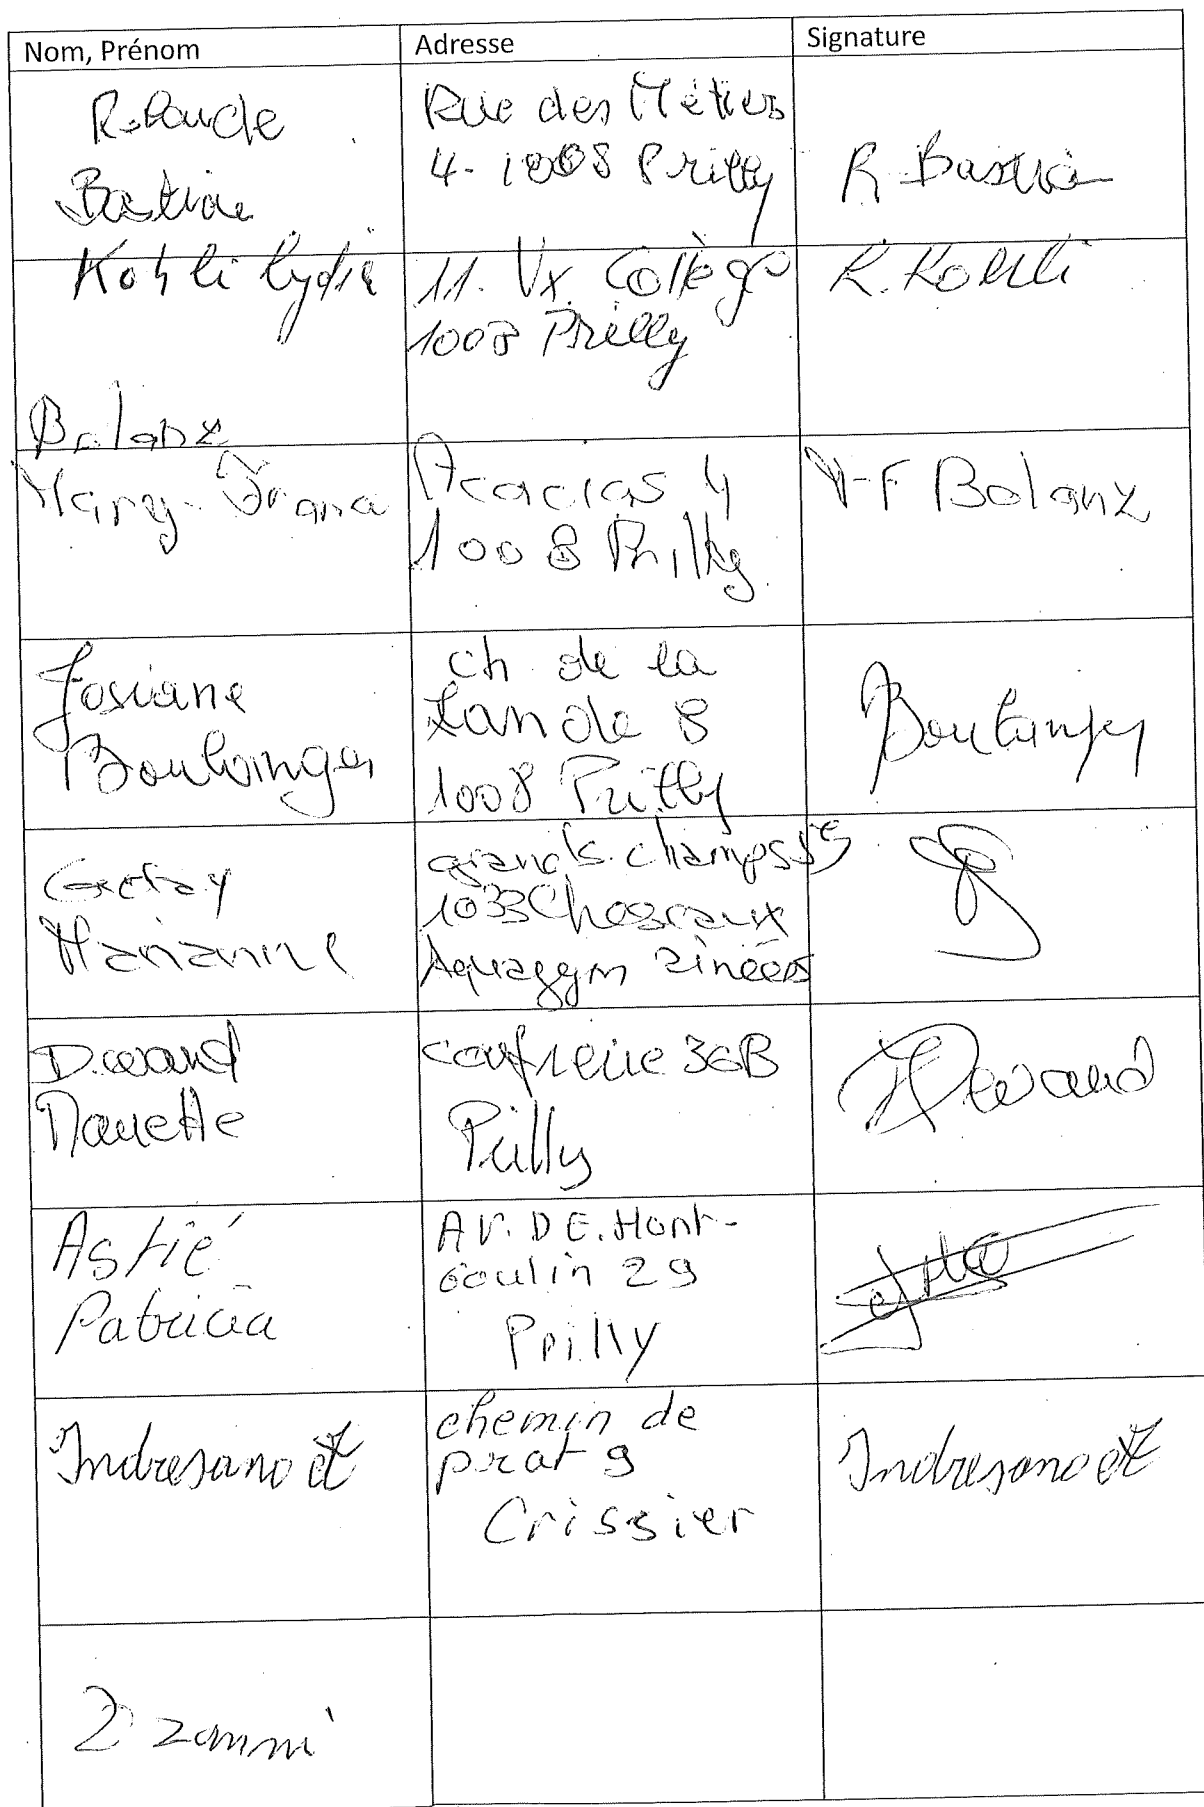 Nom, Prénom Adresse Signature
Rue des Métiers
4. 1008 Prilly
Bastian
R Bastian
Kohli Lydia
11. Vx. Collège
1008 Prilly
R. Kohli
Bolanz
Mary-
Acacias 4
1008 Prilly
M-F Bolanz
Josiane
Boulanger
ch de la
Lande 8
1008 Prilly
Boulanger
Marianne
grands. champs
1033 Cheseaux
Aquagym aînées
Devand
Confrérie 36B
Prilly
Devaud
Astié
Patricia
AV. DE. Mont-
Goulin 29
Prilly
Indresano
chemin de
prat 9
Crissier
Indresano